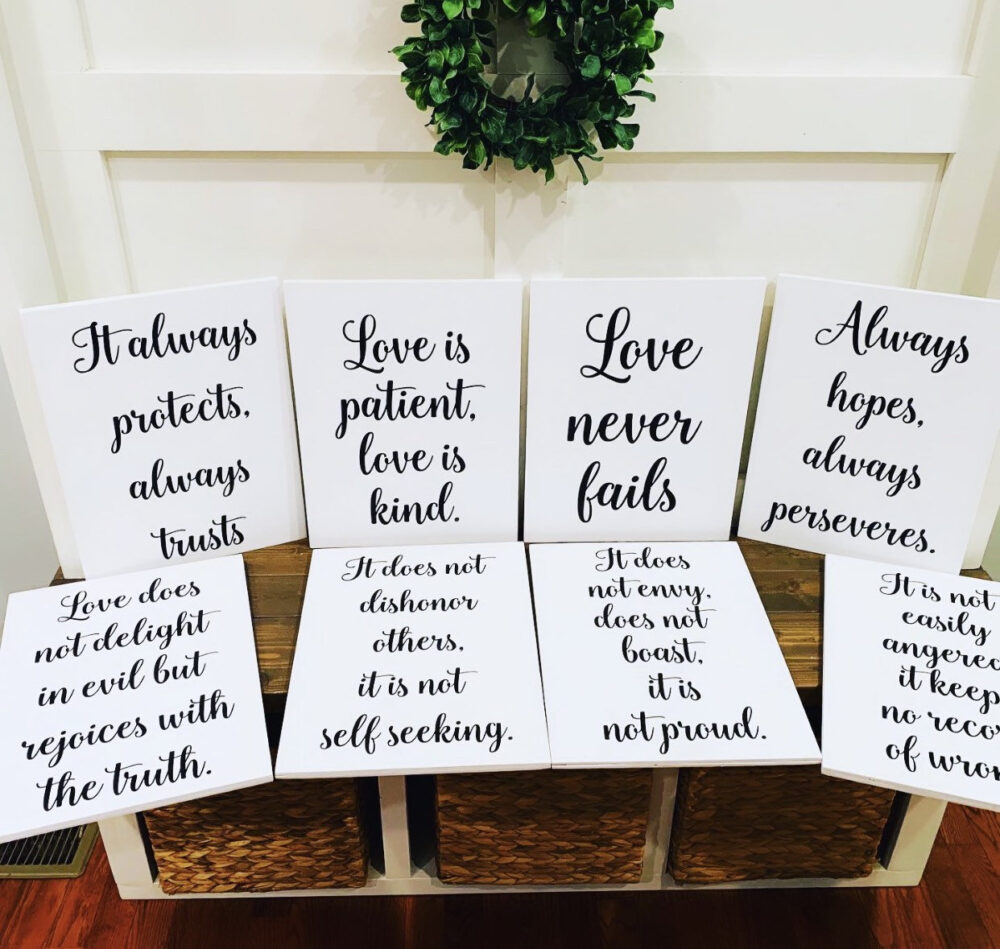 It always
protects,
always
trusts
Love is
patient,
love is
kind.
Love
never
fails
Always
hopes,
always
perseveres.
Love does
not delight
in evil but
rejoices with
the truth.
It does not
dishonor
others,
it is not
self seeking.
It does
not envy,
does not
boast,
it is
not proud.
It is not
easily
angered
it keep
no reco
of wron